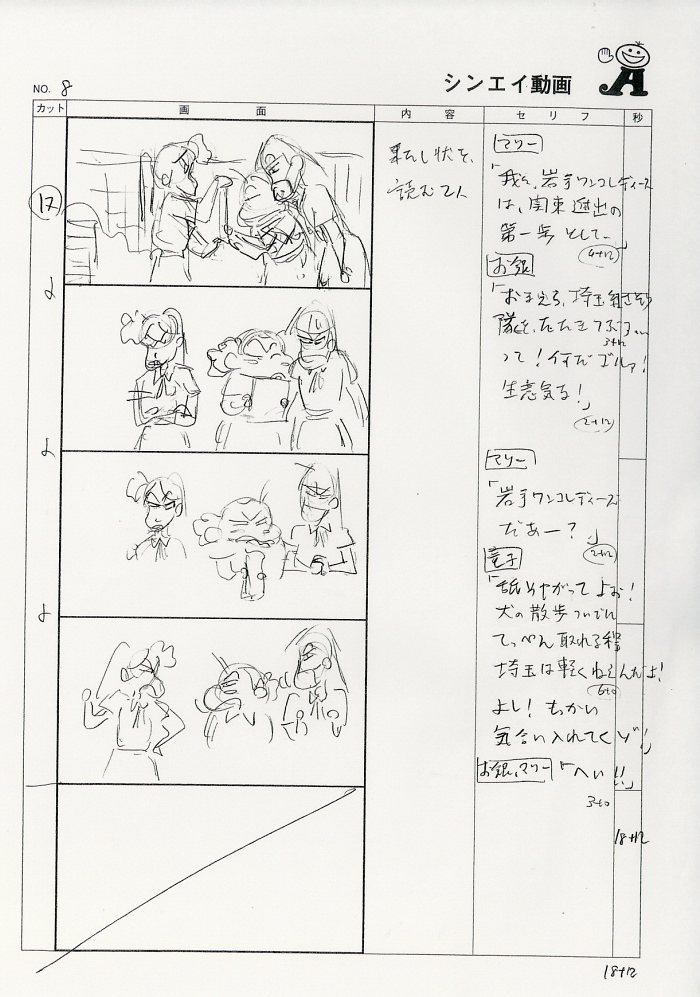 NO. 8
シンエイ動画
カット
画 面
内 容
セリフ
秒
17
果し状を、
読む3人
マリー
「我々、岩手ワンコレディース
は、関東進出の
第一歩として…」
4+12
お銀
「おまえら、埼玉紅さそり
隊を、たたきつぶす…
3+12
って！何だゴルァ！
生意気な！」
2+12
マリー
「岩手ワンコレディース
だあー？」
2+12
竜子
「舐めやがってよお！
犬の散歩ついでに
てっぺん取れる程
埼玉は軽くねえんだよ！
6+0
よし！もっかい
気合い入れてくゾ！」
お銀、マリー「へい!!」
3+0
18+12
18+12